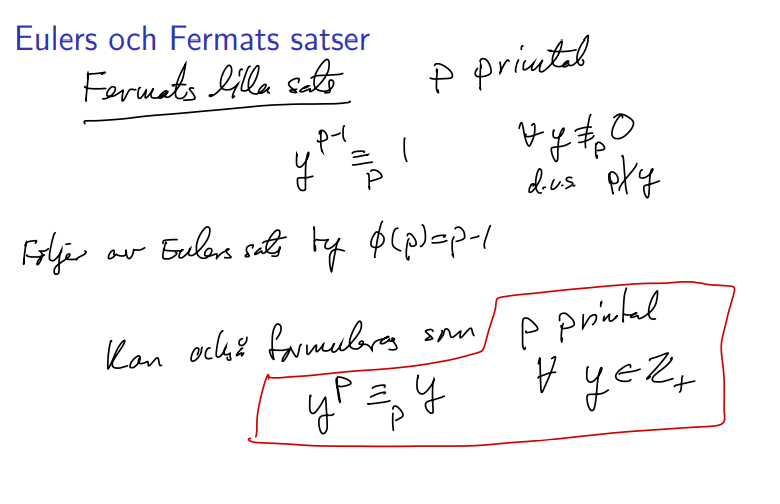 Eulers och Fermats satser
Fermats lilla sats p primtal
y^{p-1} ≡_p 1 ∀ y ≢_p 0
d.v.s p∤y
Följer av Eulers sats ty φ(p)=p-1
Kan också formuleras som p primtal
y^p ≡_p y ∀ y ∈ ℤ_+